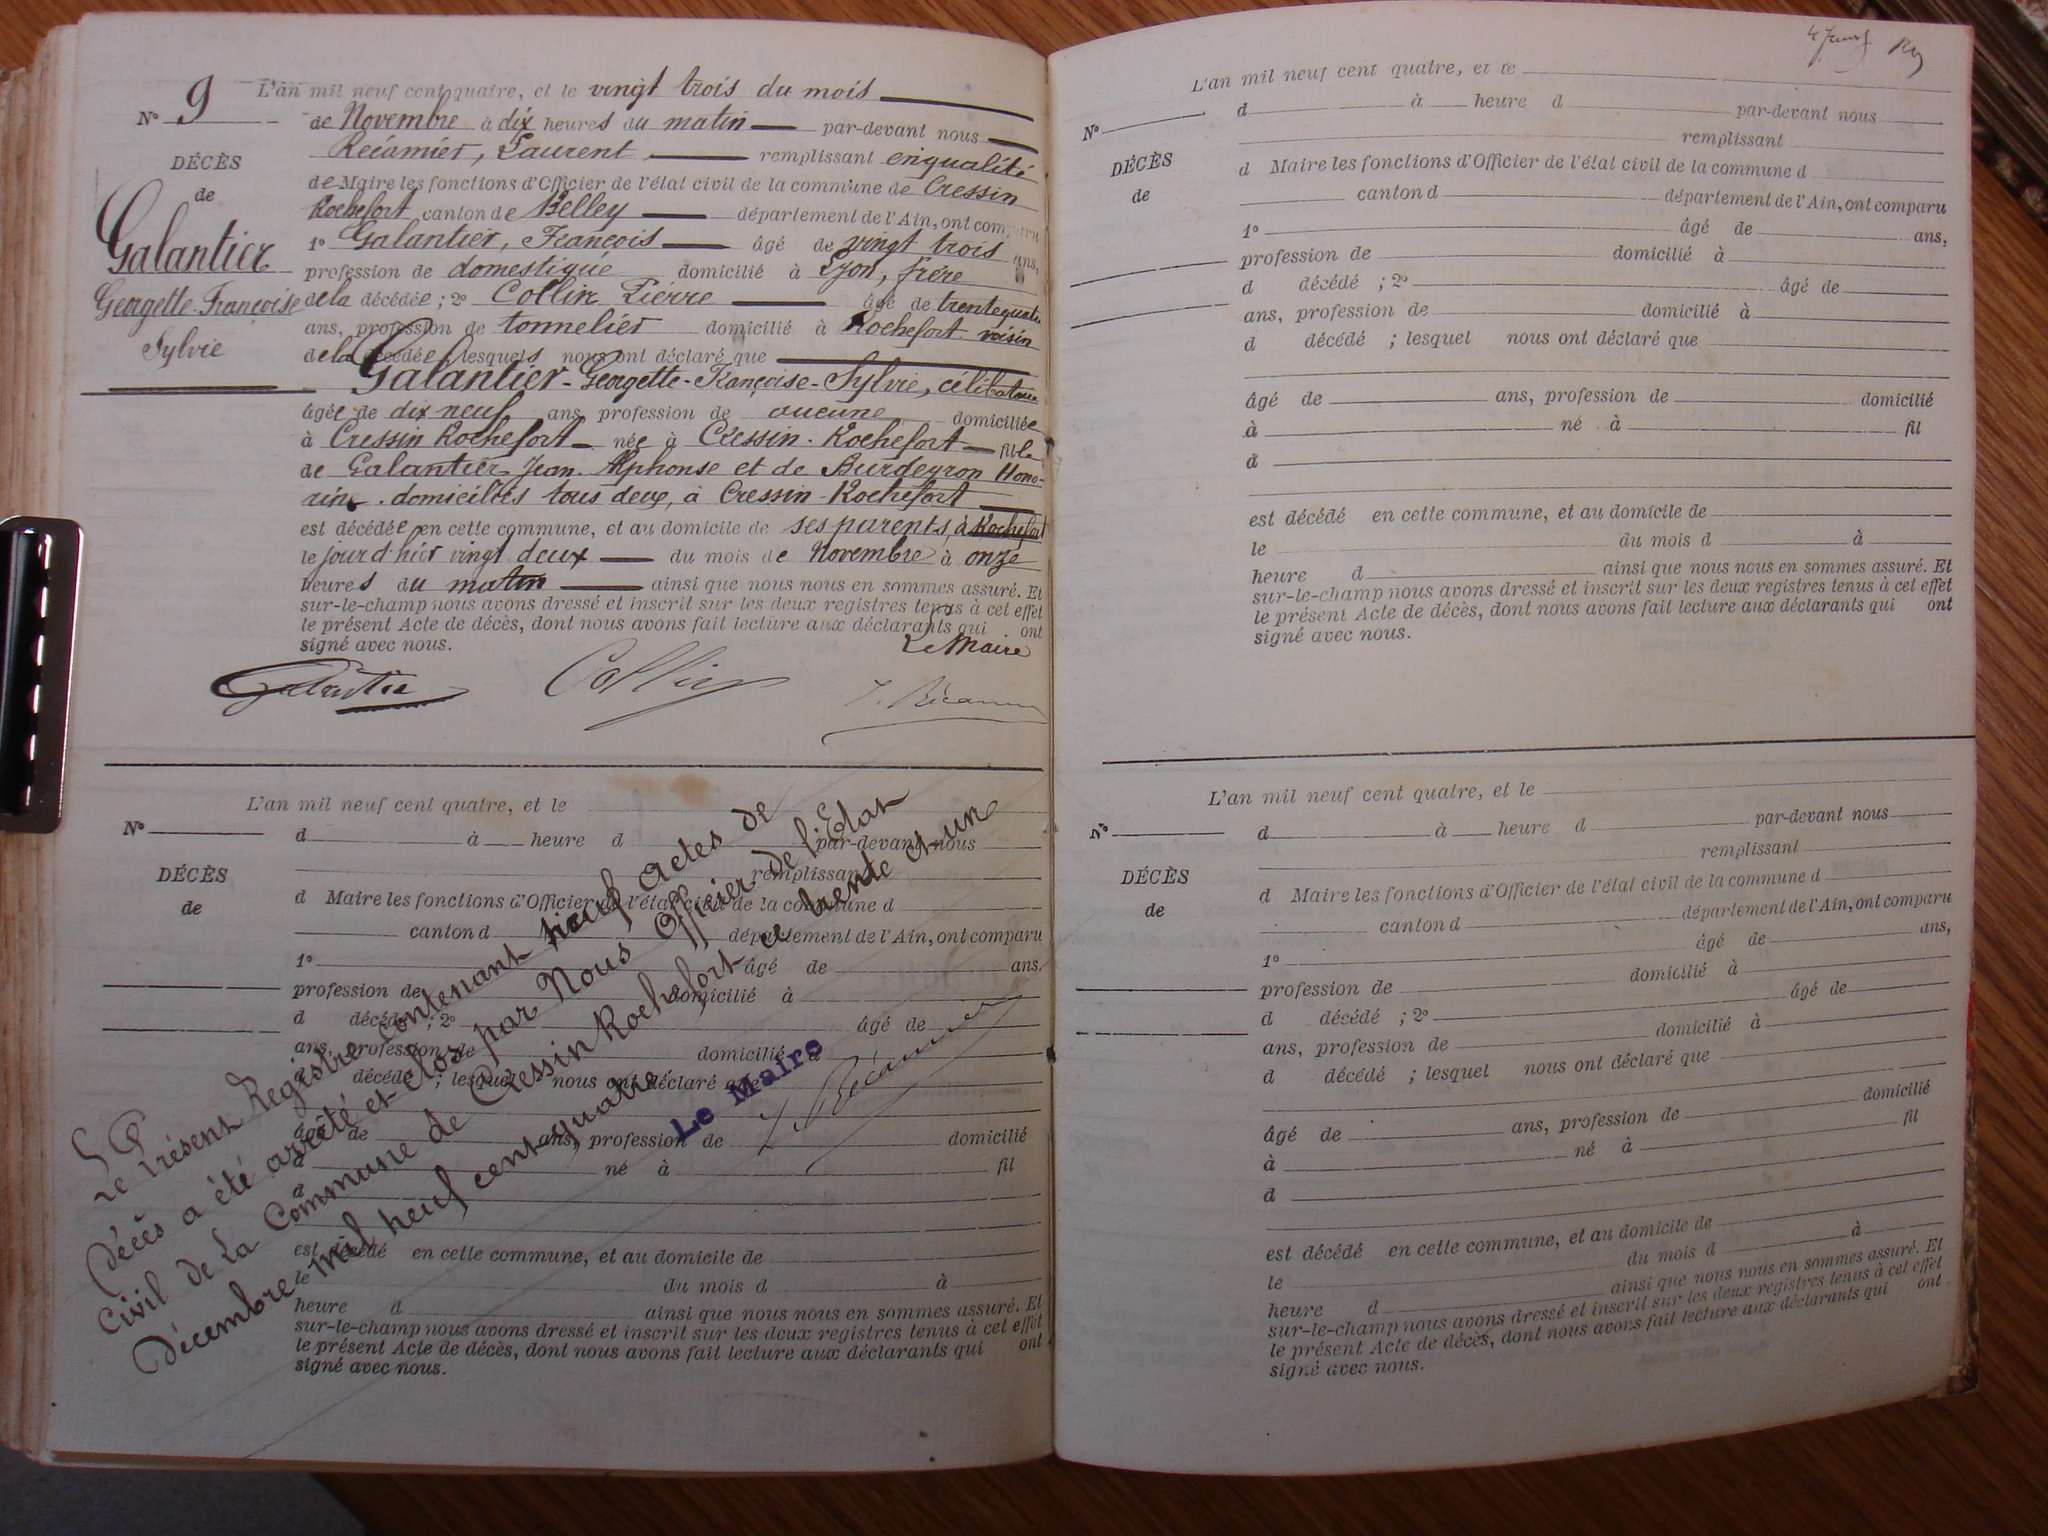 N° 9
DÉCÈS
de
Galantier
Georgette-Françoise
Sylvie
L'an mil neuf cent quatre, et le vingt trois du mois
de Novembre à dix heures du matin par-devant nous
Récamier, Laurent remplissant en qualité
de Maire les fonctions d'Officier de l'état civil de la commune de Cressin
Rochefort canton de Belley département de l'Ain, ont comparu
1° Galantier, François âgé de vingt trois ans,
profession de domestique domicilié à Lyon, frère
de la décédée ; 2° Collin Pierre âgé de trente quatre
ans, profession de tonnelier domicilié à Rochefort voisin
de la décédée, lesquels nous ont déclaré que
Galantier-Georgette-Françoise-Sylvie, célibataire
âgée de dix neuf ans, profession de aucune domiciliée
à Cressin Rochefort née à Cressin-Rochefort fille
de Galantier Jean Alphonse et de Burdeyron Hono-
rine domiciliés tous deux, à Cressin-Rochefort
est décédée en cette commune, et au domicile de ses parents, à Rochefort
le jour d'hier vingt deux du mois de Novembre à onze
heures du matin ainsi que nous nous en sommes assuré. Et
sur-le-champ nous avons dressé et inscrit sur les deux registres tenus à cet effet
le présent Acte de décès, dont nous avons fait lecture aux déclarants qui ont
signé avec nous.
Le Maire
Galantier Collin Récamier
N°
DÉCÈS
de
L'an mil neuf cent quatre, et le
d à heure d par-devant nous
remplissant
d Maire les fonctions d'Officier de l'état civil de la commune d
canton d département de l'Ain, ont comparu
1° âgé de ans.
profession de domicilié à
d décédé ; 2° âgé de
ans, profession de domicilié à
d décédé ; lesquel nous ont déclaré que
âgé de ans, profession de domicilié
à né à fil
d
est décédé en cette commune, et au domicile de
le du mois d à
heure d ainsi que nous nous en sommes assuré. Et
sur-le-champ nous avons dressé et inscrit sur les deux registres tenus à cet effet
le présent Acte de décès, dont nous avons fait lecture aux déclarants qui ont
signé avec nous.
Le Présent Registre contenant neuf actes de
décès a été arrêté et clos par Nous Officier de l'Etat
Civil de la Commune de Cressin Rochefort le trente et un
décembre mil neuf cent quatre
Le Maire
Récamier
N°
DÉCÈS
de
L'an mil neuf cent quatre, et le
d à heure d par-devant nous
remplissant
d Maire les fonctions d'Officier de l'état civil de la commune d
canton d département de l'Ain, ont comparu
1° âgé de ans,
profession de domicilié à
d décédé ; 2° âgé de
ans, profession de domicilié à
d décédé ; lesquel nous ont déclaré que
âgé de ans, profession de domicilié
à né à fil
d
est décédé en cette commune, et au domicile de
le du mois d à
heure d ainsi que nous nous en sommes assuré. Et
sur-le-champ nous avons dressé et inscrit sur les deux registres tenus à cet effet
le présent Acte de décès, dont nous avons fait lecture aux déclarants qui ont
signé avec nous.
N°
DÉCÈS
de
L'an mil neuf cent quatre, et le
d à heure d par-devant nous
remplissant
d Maire les fonctions d'Officier de l'état civil de la commune d
canton d département de l'Ain, ont comparu
1° âgé de ans,
profession de domicilié à
d décédé ; 2° âgé de
ans, profession de domicilié à
d décédé ; lesquel nous ont déclaré que
âgé de ans, profession de domicilié
à né à fil
d
est décédé en cette commune, et au domicile de
le du mois d à
heure d ainsi que nous nous en sommes assuré. Et
sur-le-champ nous avons dressé et inscrit sur les deux registres tenus à cet effet
le présent Acte de décès, dont nous avons fait lecture aux déclarants qui ont
signé avec nous.